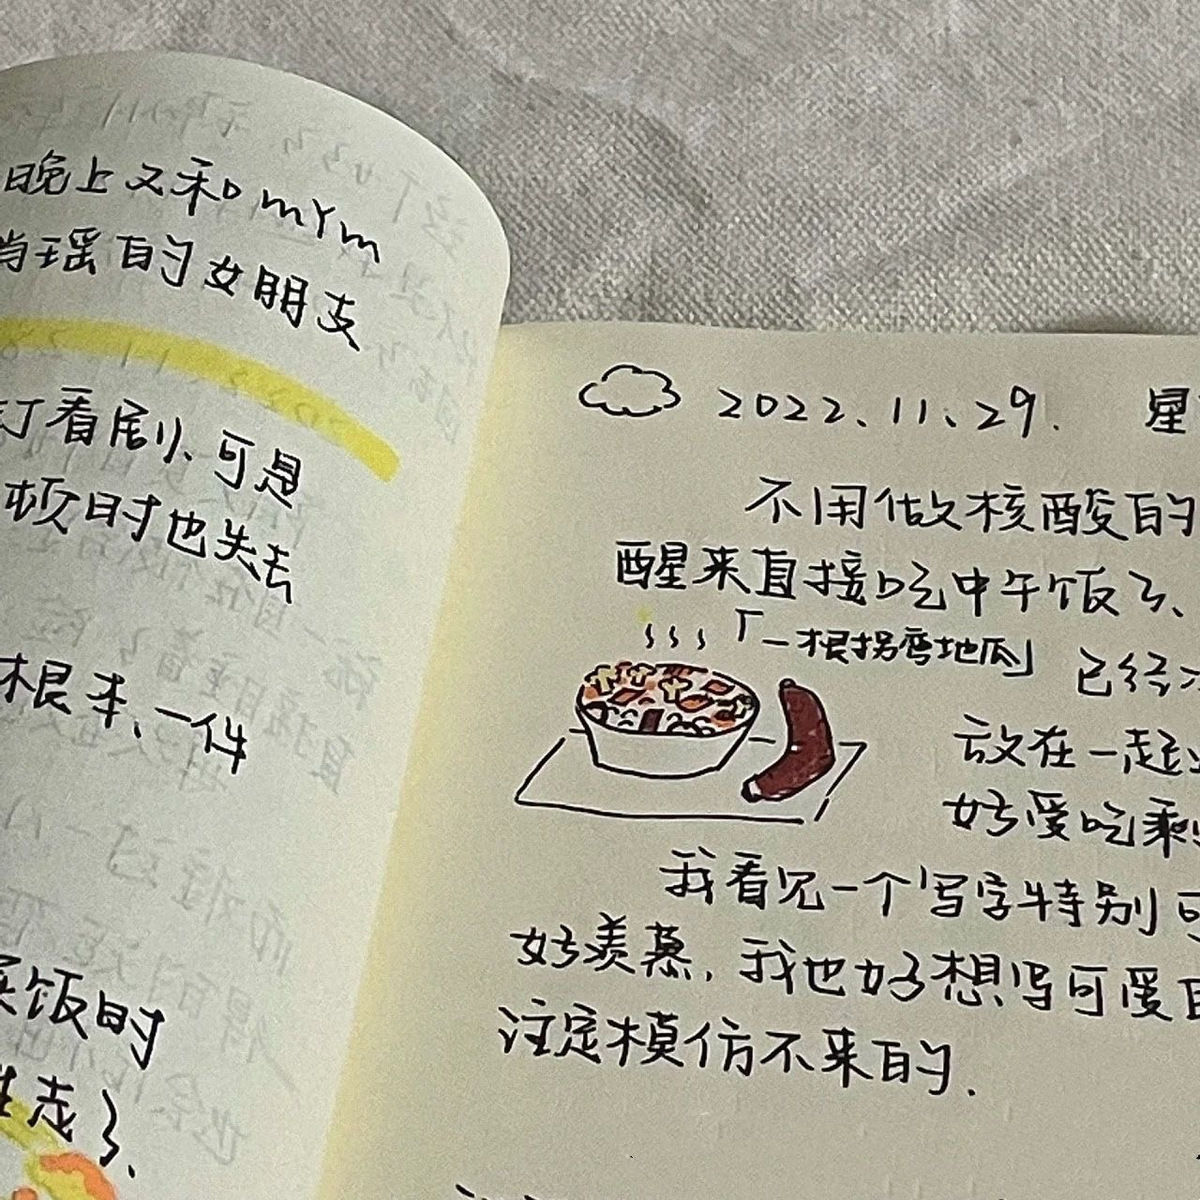 晚上又和mym
瑶的女朋友
看剧、可是
顿时也失去
根本、一件
饭时
走了、
2022.11.29. 星
不用做核酸的
醒来直接吃中午饭了、
「一根拐弯地瓜」
已经
放在一起
好爱吃剩
我看见一个写字特别可
好羡慕,我也好想写可爱
注定模仿不来的.